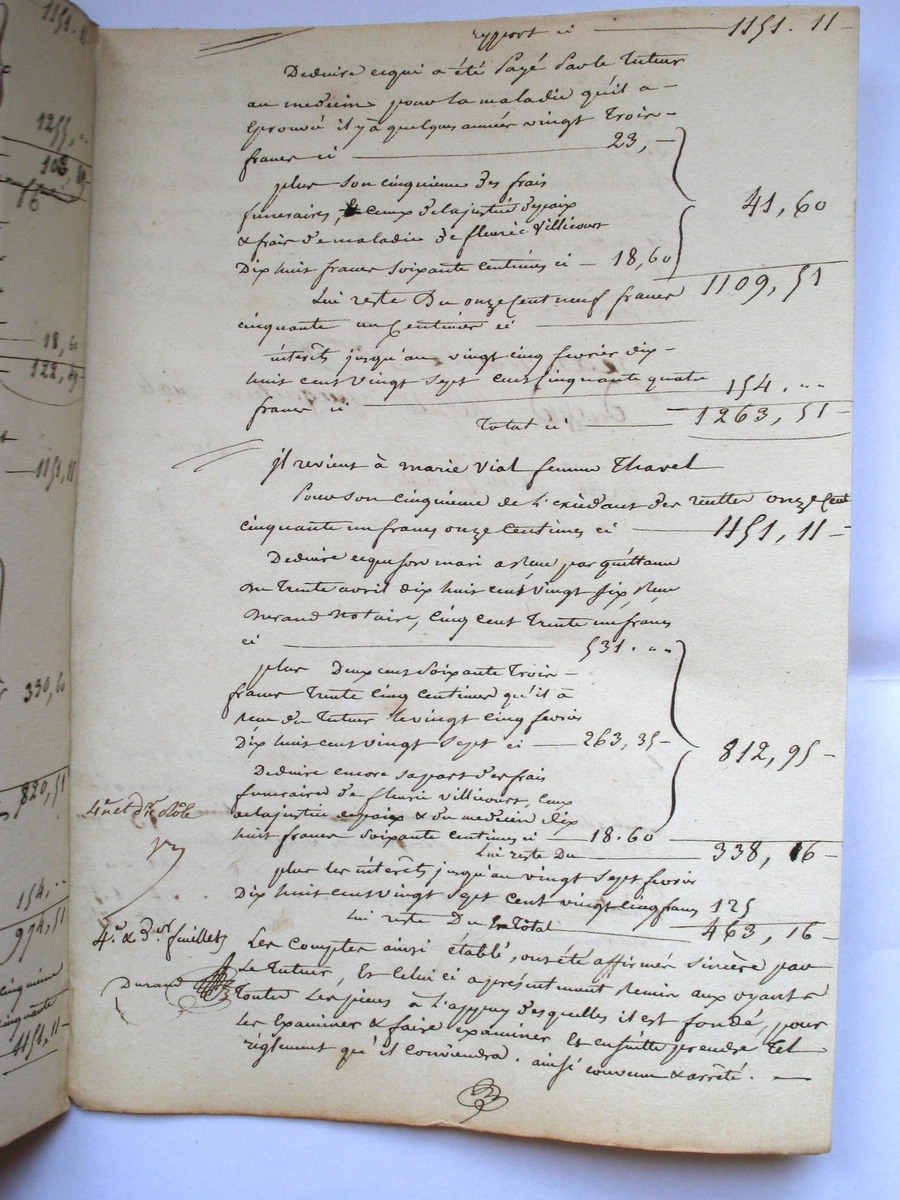 1151. 11
1255, "
102, 89
18, 60
122, 89
1151, 11
330, 60
820, 51
154, "
974, 51
cinquieme
cinquante
1151, 11
rapport ci 1151. 11
Deduire cequi a été payé par le Tuteur
au medecin pour la maladie qu'il a
Eprouvé il y a quelques année vingt Trois
francs ci 23, 
plus son cinquieme des frais
funeraires, & ceux de la justice de paix 41, 60
& frais de maladie de fleurie Villicour
Dix huit francs soixante centimes ci 18, 60
Lui reste Du onze Cent neuf francs 1109, 51
cinquante un Centimes ci
interêts jusqu'au vingt cinq fevrier dix
huit cent vingt sept cent cinquante quatre
francs ci 154. "
Total ci 1263, 51
jl revient à marie Vial femme Thavel
Pour son cinquieme de l'exèdant des recettes onze Cent
cinquante un francs onze Centimes ci 1151, 11
Deduire ceque son mari a Reçu par quittance
du trente avril dix huit cent vingt six, Reçu
Durand Notaire, Cinq Cent Trente un francs
ci 531. "
plus Deux cent soixante Trois
francs Trente Cinq Centimes qu'il à
Reçu du Tuteur le vingt Cinq fevrier
Dix huit cent vingt sept ci 263, 35 812, 95
Deduire encore sa part des frais
funeraires de fleurie Villicour, Ceux
de la justice de paix & du medecin Dix
huit francs soixante centimes ci 18. 60
Lui reste Du 338, 16
plus les interêts jusqu'au vingt sept fevrier
Dix huit cent vingt sept Cent vingt Cinq francs 125
Lui reste Du En Total 463, 16
Les Comptes ainsi établé, ont été affirmés sincère par
Le Tuteur, Et Celui ci a présentement Remis aux oyants
Toutes Les pieces à L'appuy Desquelles il est fondé, pour
Les Examiner & faire examiner Et ensuitte prendre Tel
réglement qu'il Conviendra. ainsi convenu & arrêté.
4e et dr Rôle
4e & 3er feuillets
Durand